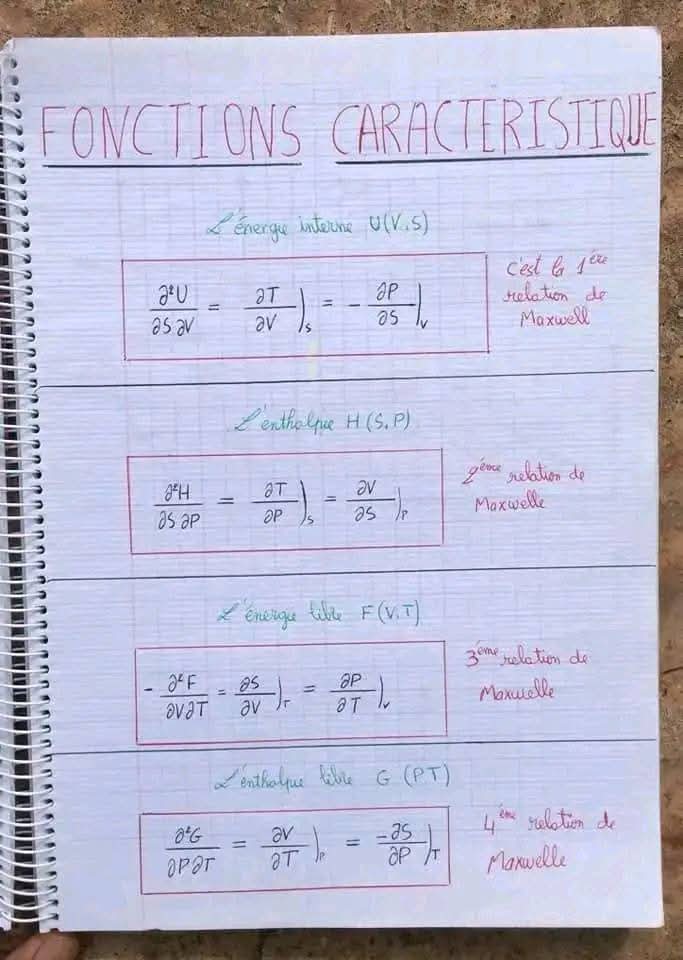 FONCTIONS CARACTERISTIQUE
L'énergie interne U(V,S)
∂²U/∂S∂V = ∂T/∂V)_S = - ∂P/∂S)_V
c'est la 1ère
relation de
Maxwell
L'enthalpie H(S,P)
∂²H/∂S∂P = ∂T/∂P)_S = ∂V/∂S)_P
2ème relation de
Maxwelle
L'énergie libre F(V,T)
- ∂²F/∂V∂T = ∂S/∂V)_T = ∂P/∂T)_V
3ème relation de
Maxwelle
L'enthalpie libre G (P,T)
∂²G/∂P∂T = ∂V/∂T)_P = -∂S/∂P)_T
4ème relation de
Maxwelle